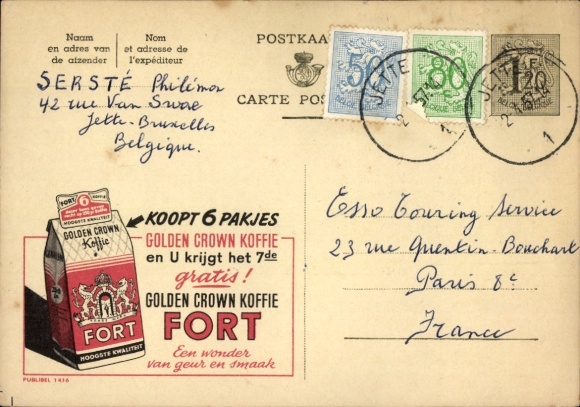 Naam en adres van de afzender
Nom et adresse de l'expéditeur
POSTKAA
CARTE POS
50
80
1F20
JETTE
JETTE
1
1
SERSTÉ Philémon
42 rue Van Swae
Jette-Bruxelles
Belgique.
Esso Touring Service
23 rue Quentin-Bauchart
Paris 8e
France
FORT 6 KOFFIE
GOLDEN CROWN
Koffie
FORT
HOOGSTE KWALITEIT
KOOPT 6 PAKJES
GOLDEN CROWN KOFFIE
en U krijgt het 7de
gratis!
GOLDEN CROWN KOFFIE
FORT
Een wonder
van geur en smaak
PUBLIBEL 1416